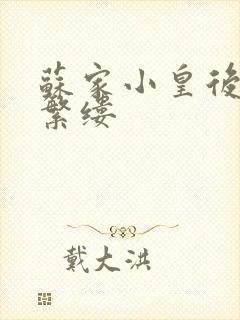 蘇家小皇後
繁缕
戴大洪